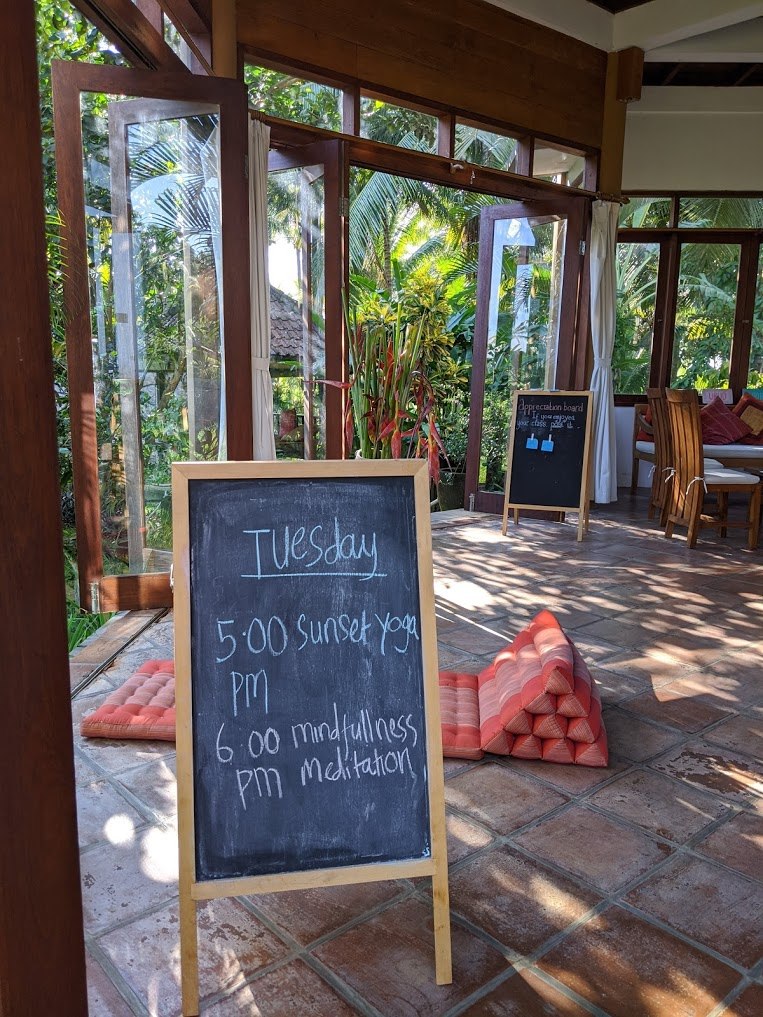 Tuesday
5:00 sunset yoga
PM
6:00 mindfullness
PM meditation
Appreciation board
If you enjoyed
your class, post it